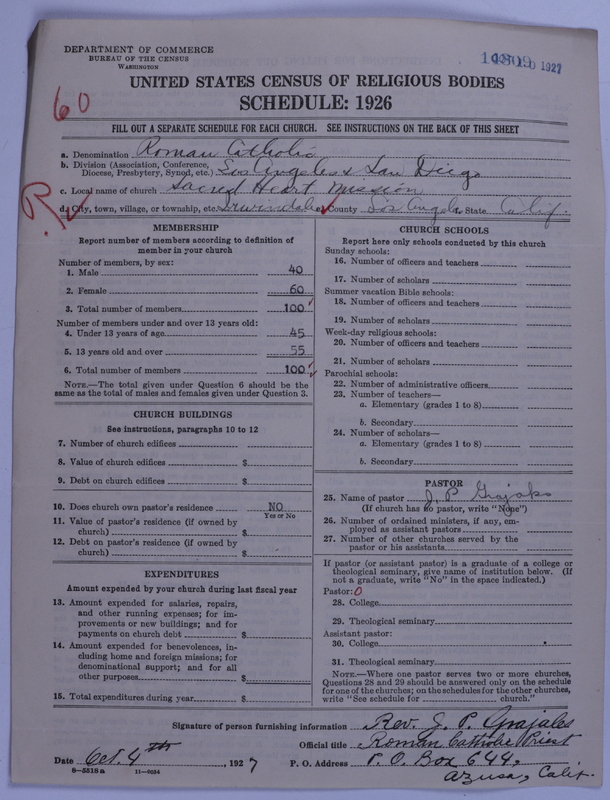 DEPARTMENT OF COMMERCE
BUREAU OF THE CENSUS
WASHINGTON
1927
UNITED STATES CENSUS OF RELIGIOUS BODIES
SCHEDULE: 1926
60
FILL OUT A SEPARATE SCHEDULE FOR EACH CHURCH. SEE INSTRUCTIONS ON THE BACK OF THIS SHEET
a. Denomination Roman Catholic
b. Division (Association, Conference, Diocese, Presbytery, Synod, etc.) Los Angeles & San Diego
c. Local name of church Sacred Heart Mission
R.
d. City, town, village, or township, etc. Irwindale County Los Angeles State Calif.
MEMBERSHIP
Report number of members according to definition of
member in your church
Number of members, by sex:
1. Male 40
2. Female 60
3. Total number of members 100
Number of members under and over 13 years old:
4. Under 13 years of age 45
5. 13 years old and over 55
6. Total number of members 100
NOTE.—The total given under Question 6 should be the
same as the total of males and females given under Question 3.
CHURCH BUILDINGS
See instructions, paragraphs 10 to 12
7. Number of church edifices
8. Value of church edifices $
9. Debt on church edifices $
10. Does church own pastor's residence NO
Yes or No
11. Value of pastor's residence (if owned by
church) $
12. Debt on pastor's residence (if owned by
church) $
EXPENDITURES
Amount expended by your church during last fiscal year
13. Amount expended for salaries, repairs,
and other running expenses; for im-
provements or new buildings; and for
payments on church debt $
14. Amount expended for benevolences, in-
cluding home and foreign missions; for
denominational support; and for all
other purposes $
15. Total expenditures during year $
CHURCH SCHOOLS
Report here only schools conducted by this church
Sunday schools:
16. Number of officers and teachers
17. Number of scholars
Summer vacation Bible schools:
18. Number of officers and teachers
19. Number of scholars
Week-day religious schools:
20. Number of officers and teachers
21. Number of scholars
Parochial schools:
22. Number of administrative officers
23. Number of teachers—
a. Elementary (grades 1 to 8)
b. Secondary
24. Number of scholars—
a. Elementary (grades 1 to 8)
b. Secondary
PASTOR
25. Name of pastor J P Grajales
(If church has no pastor, write "None")
26. Number of ordained ministers, if any, em-
ployed as assistant pastors
27. Number of other churches served by the
pastor or his assistants
If pastor (or assistant pastor) is a graduate of a college or
theological seminary, give name of institution below. (If
not a graduate, write "No" in the space indicated.)
Pastor: 0
28. College
29. Theological seminary
Assistant pastor:
30. College
31. Theological seminary
NOTE.—Where one pastor serves two or more churches,
Questions 28 and 29 should be answered only on the schedule
for one of the churches; on the schedules for the other churches,
write "See schedule for church."
Signature of person furnishing information Rev. J. P. Grajales
Official title Roman Catholic Priest
Date Oct. 4th, 1927 P. O. Address P. O. Box 644,
8—5518a 11—9034 Azusa, Calif.